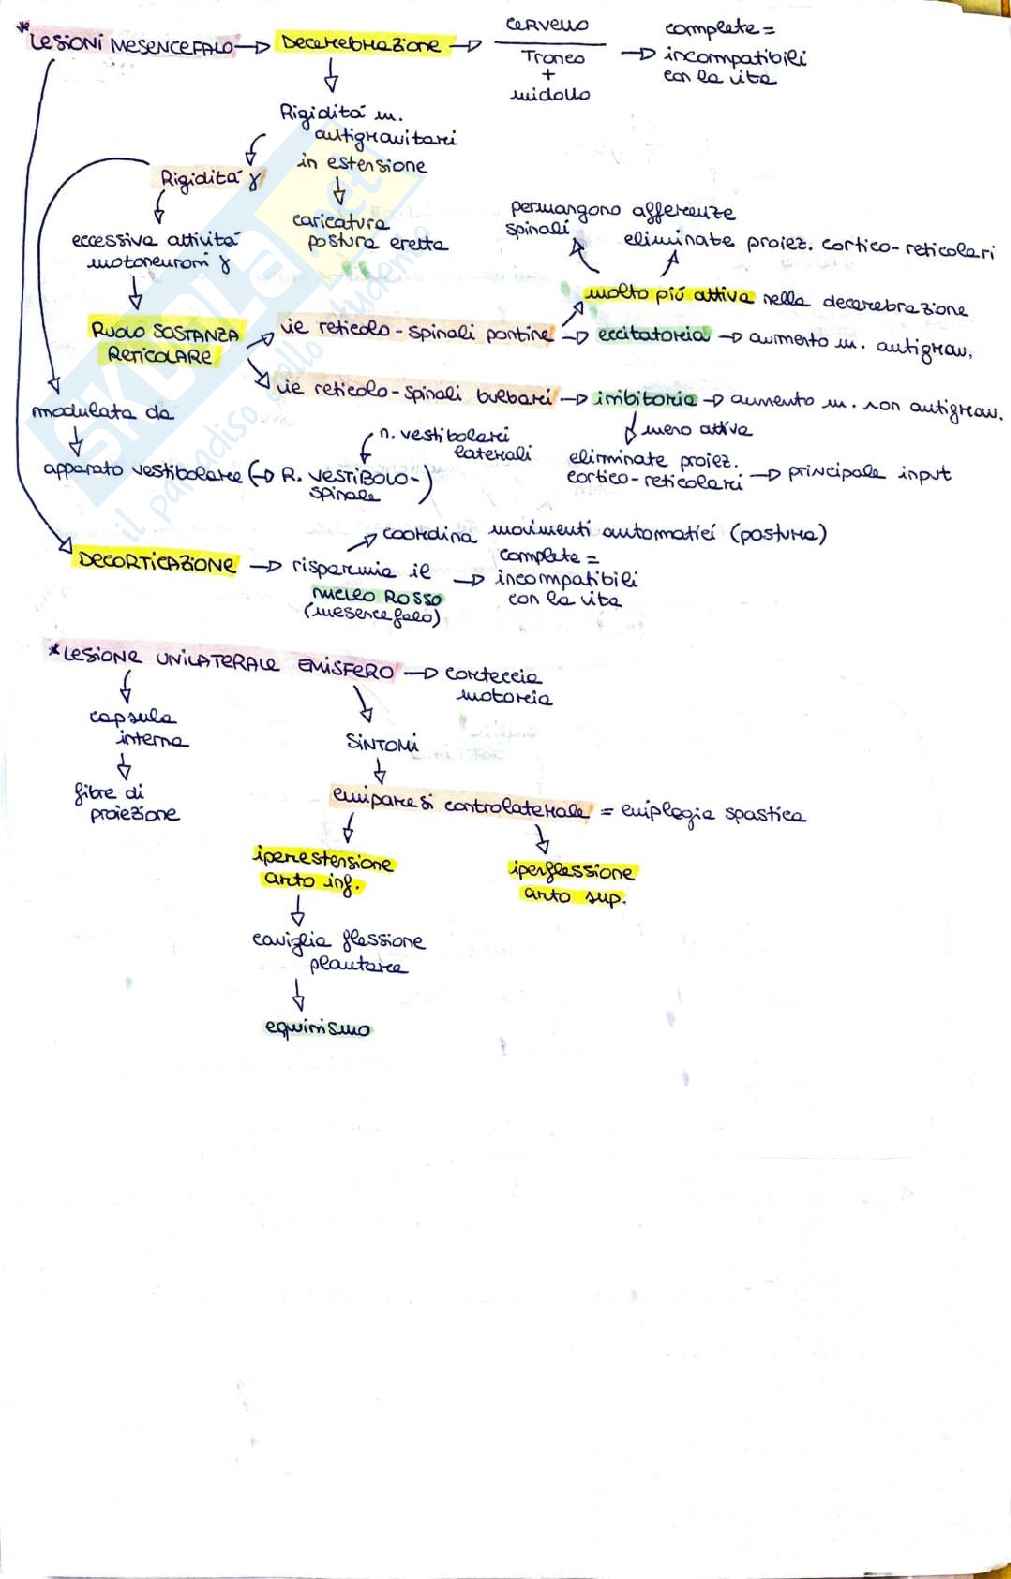 *LESIONI MESENCEFALO → Decerebrazione → CERVELLO
Tronco
+
midollo
→ complete =
incompatibili
con la vita
Rigidità m.
antigravitari
in estensione
Rigidità γ
caricatura
postura eretta
eccessiva attività
motoneuroni γ
permangono afferenze
spinali
eliminate proiez. cortico-reticolari
molto più attiva nella decerebrazione
RUOLO SOSTANZA
RETICOLARE
vie reticolo-spinali pontine → eccitatoria → aumento m. antigrav.
vie reticolo-spinali bulbari → inibitoria → aumento m. non antigrav.
meno attiva
modulata da
n. vestibolari
laterali
eliminate proiez.
cortico-reticolari → principale input
apparato vestibolare (→ R. VESTIBOLO-
spinale)
coordina movimenti automatici (postura)
DECORTICAZIONE → risparmia il
nucleo ROSSO
(mesencefalo)
→ complete =
incompatibili
con la vita
*LESIONE UNILATERALE EMISFERO → corteccia
motoria
capsula
interna
SINTOMI
fibre di
proiezione
emiparesi controlaterale = emiplegia spastica
iperestensione
arto inf.
iperflessione
arto sup.
caviglia flessione
plantare
equinismo
SKUOLA.net
il paradiso dello studente